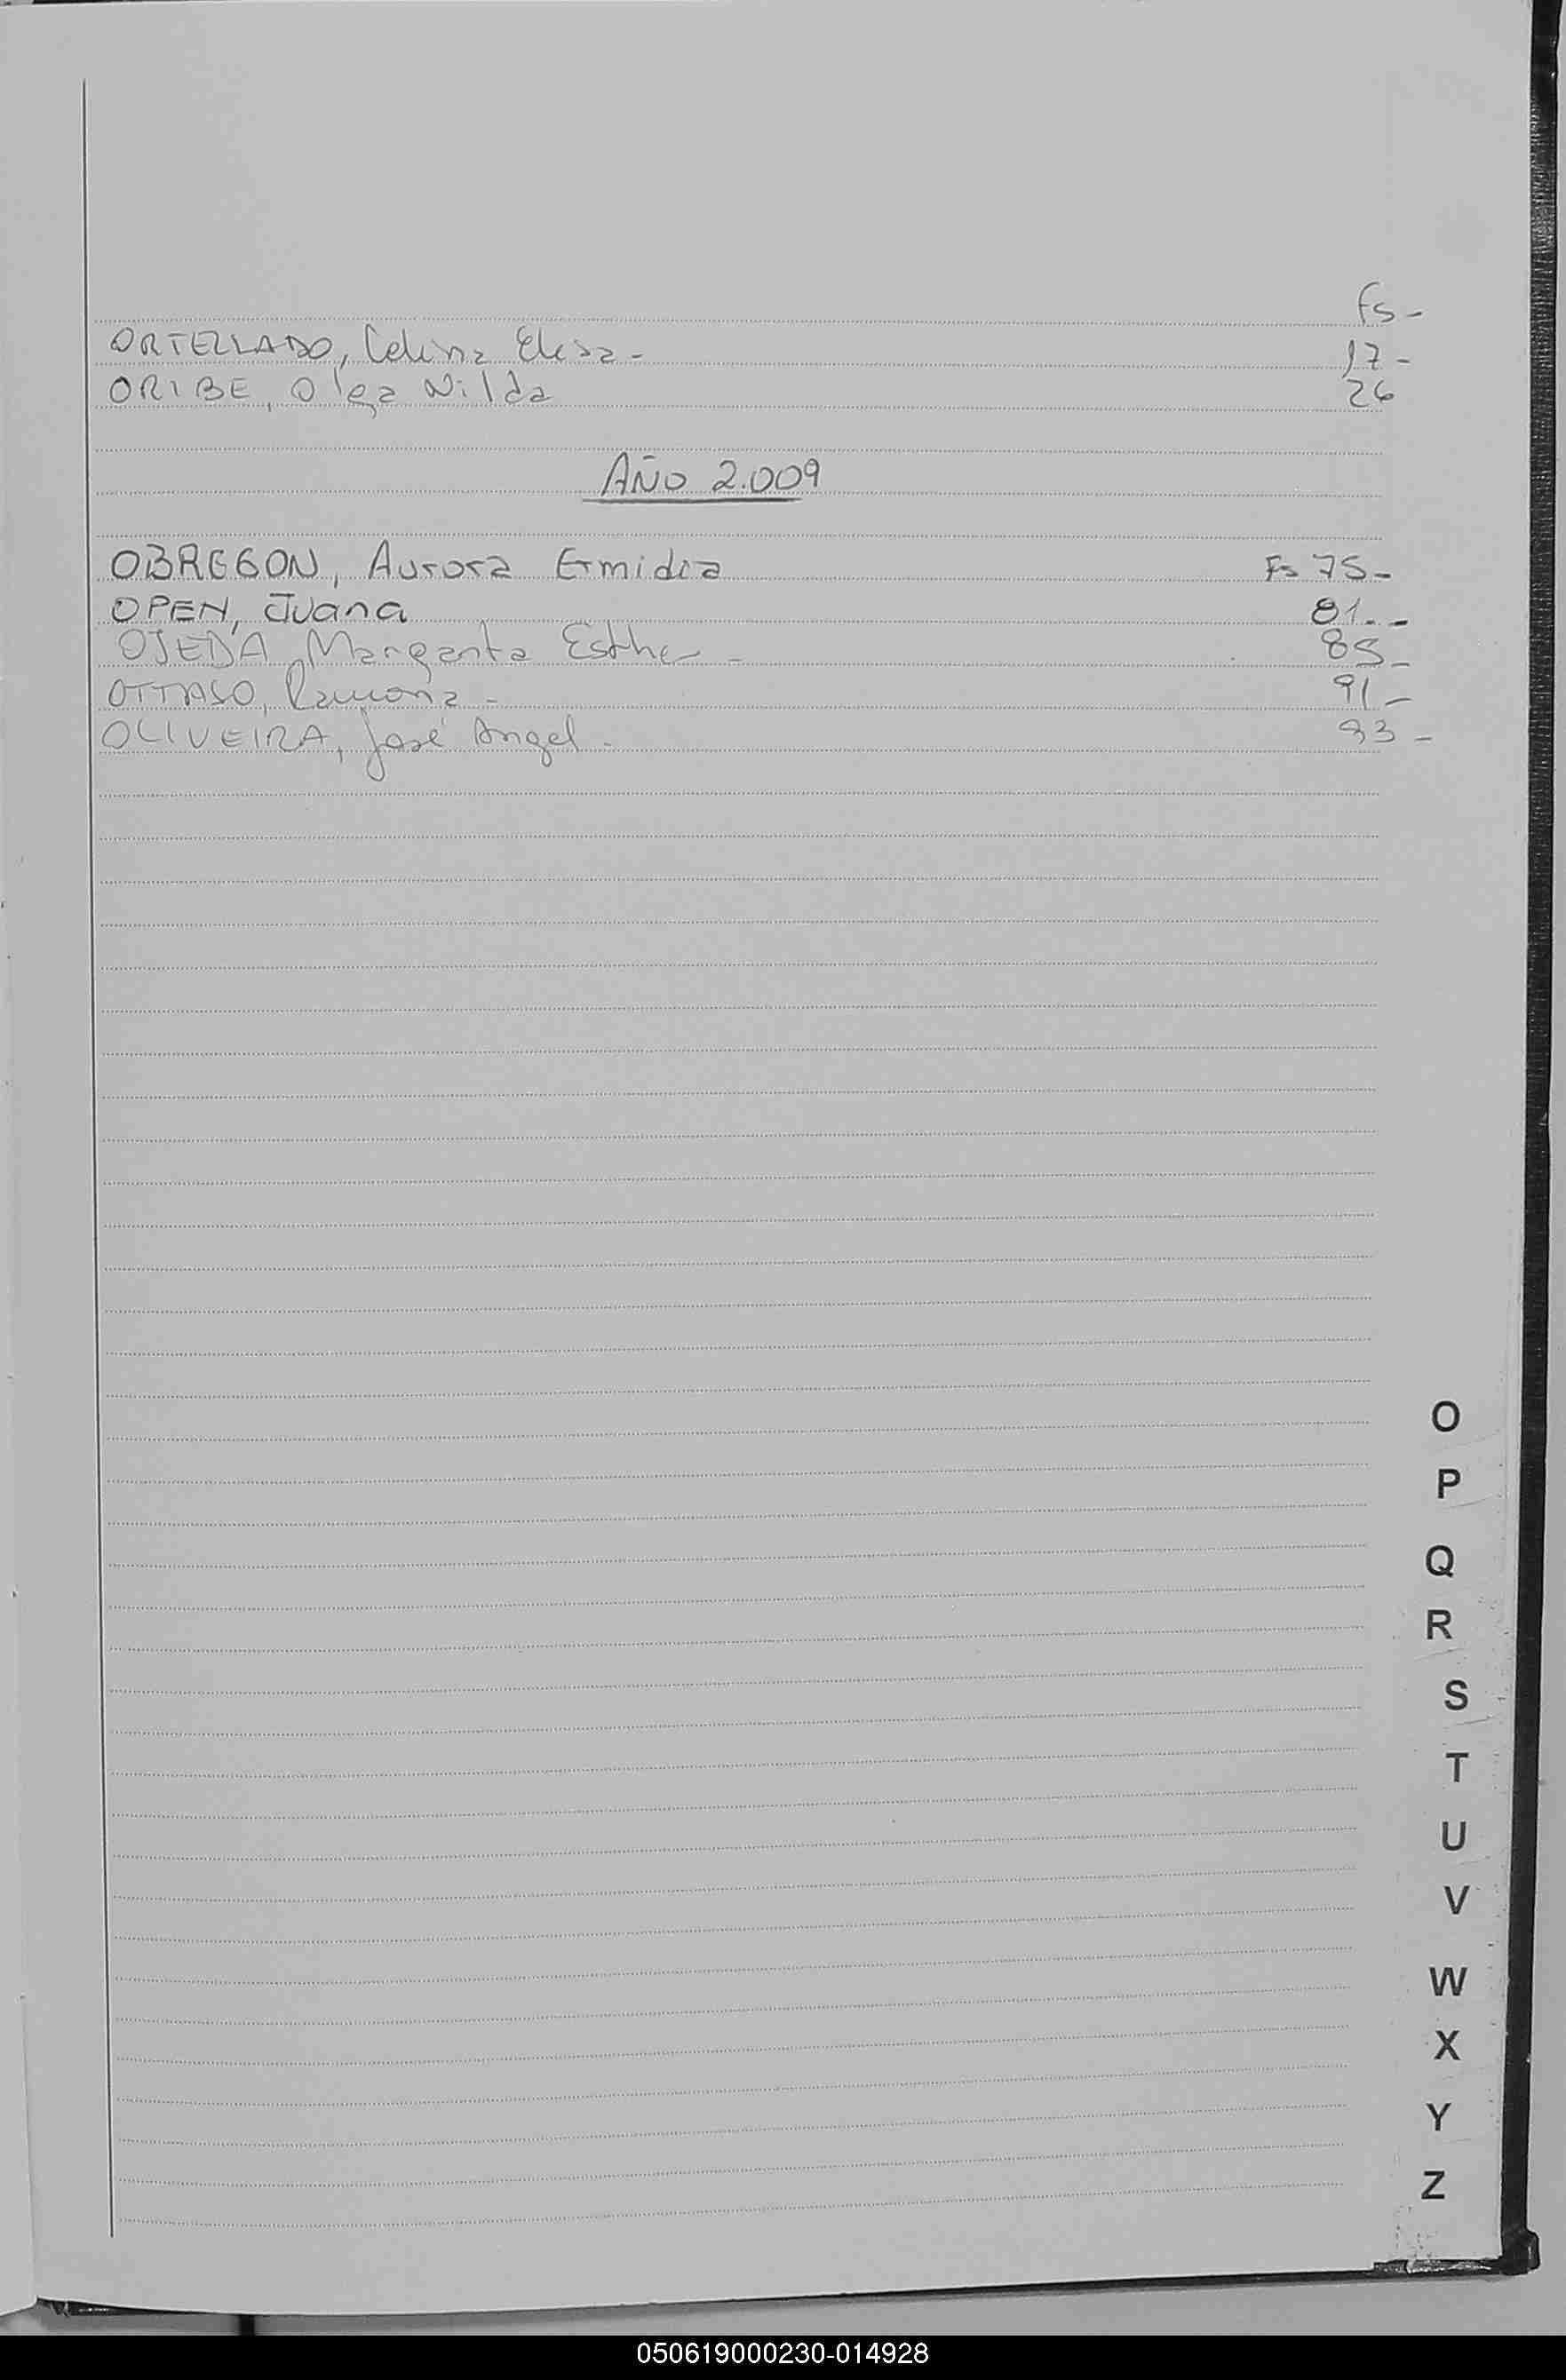 Fs-
ORTELLADO, Celina Elisa - 17-
ORIBE, Olga Nilda 26
AÑO 2.009
OBREGON, Aurora Ermidia Fs 75-
OPEN, Juana 81.-
OJEDA, Margarita Esther - 85-
OTTASO, Ramona - 91-
OLIVEIRA, José Angel - 93-
O
P
Q
R
S
T
U
V
W
X
Y
Z
050619000230-014928